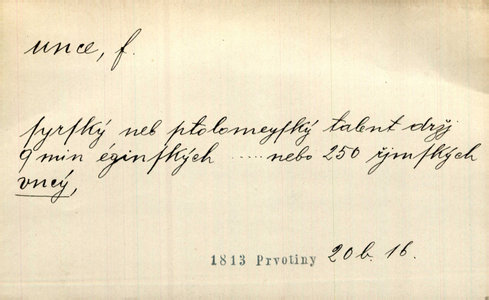 unce, f.
syrſký neb ptolomeyſký talent držj
9 min éginſkých ..... nebo 250 řjmſkých
vncý,
1813 Prvotiny 20b. 16.